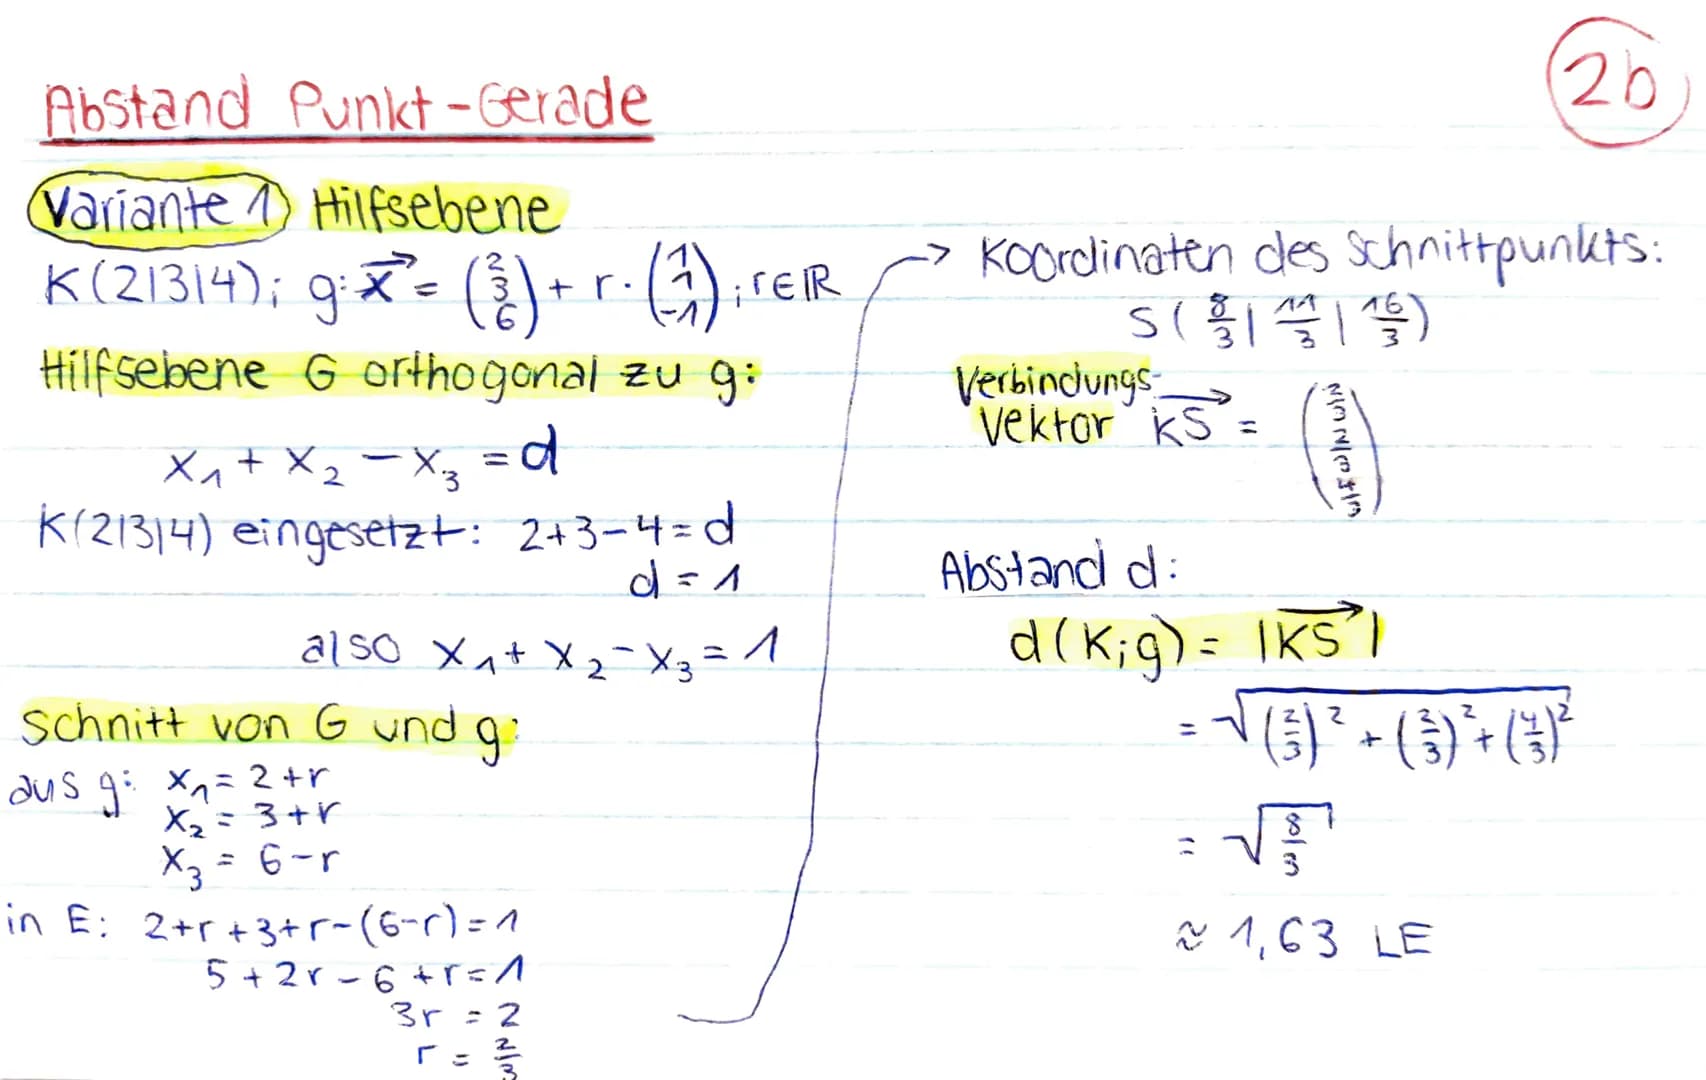 2b
Abstand Punkt-Gerade
Variante 1 Hilfsebene
K(2|3|4); g: x⃗ = (2 3 6) + r · (1 1 -1); r∈ℝ
Hilfsebene G orthogonal zu g:
x₁ + x₂ - x₃ = d
K(2|3|4) eingesetzt: 2+3-4=d
d = 1
also x₁ + x₂ - x₃ = 1
Schnitt von G und g:
aus g: x₁ = 2+r
x₂ = 3+r
x₃ = 6-r
in E: 2+r+3+r-(6-r)=1
5+2r-6+r=1
3r = 2
r = 2/3
→ Koordinaten des Schnittpunkts:
S(8/3 | 11/3 | 16/3)
Verbindungs-
vektor KS⃗ = (2/3 2/3 4/3)
Abstand d:
d(K;g) = |KS⃗|
= √((2/3)² + (2/3)² + (4/3)²)
= √(8/3)
≈ 1,63 LE